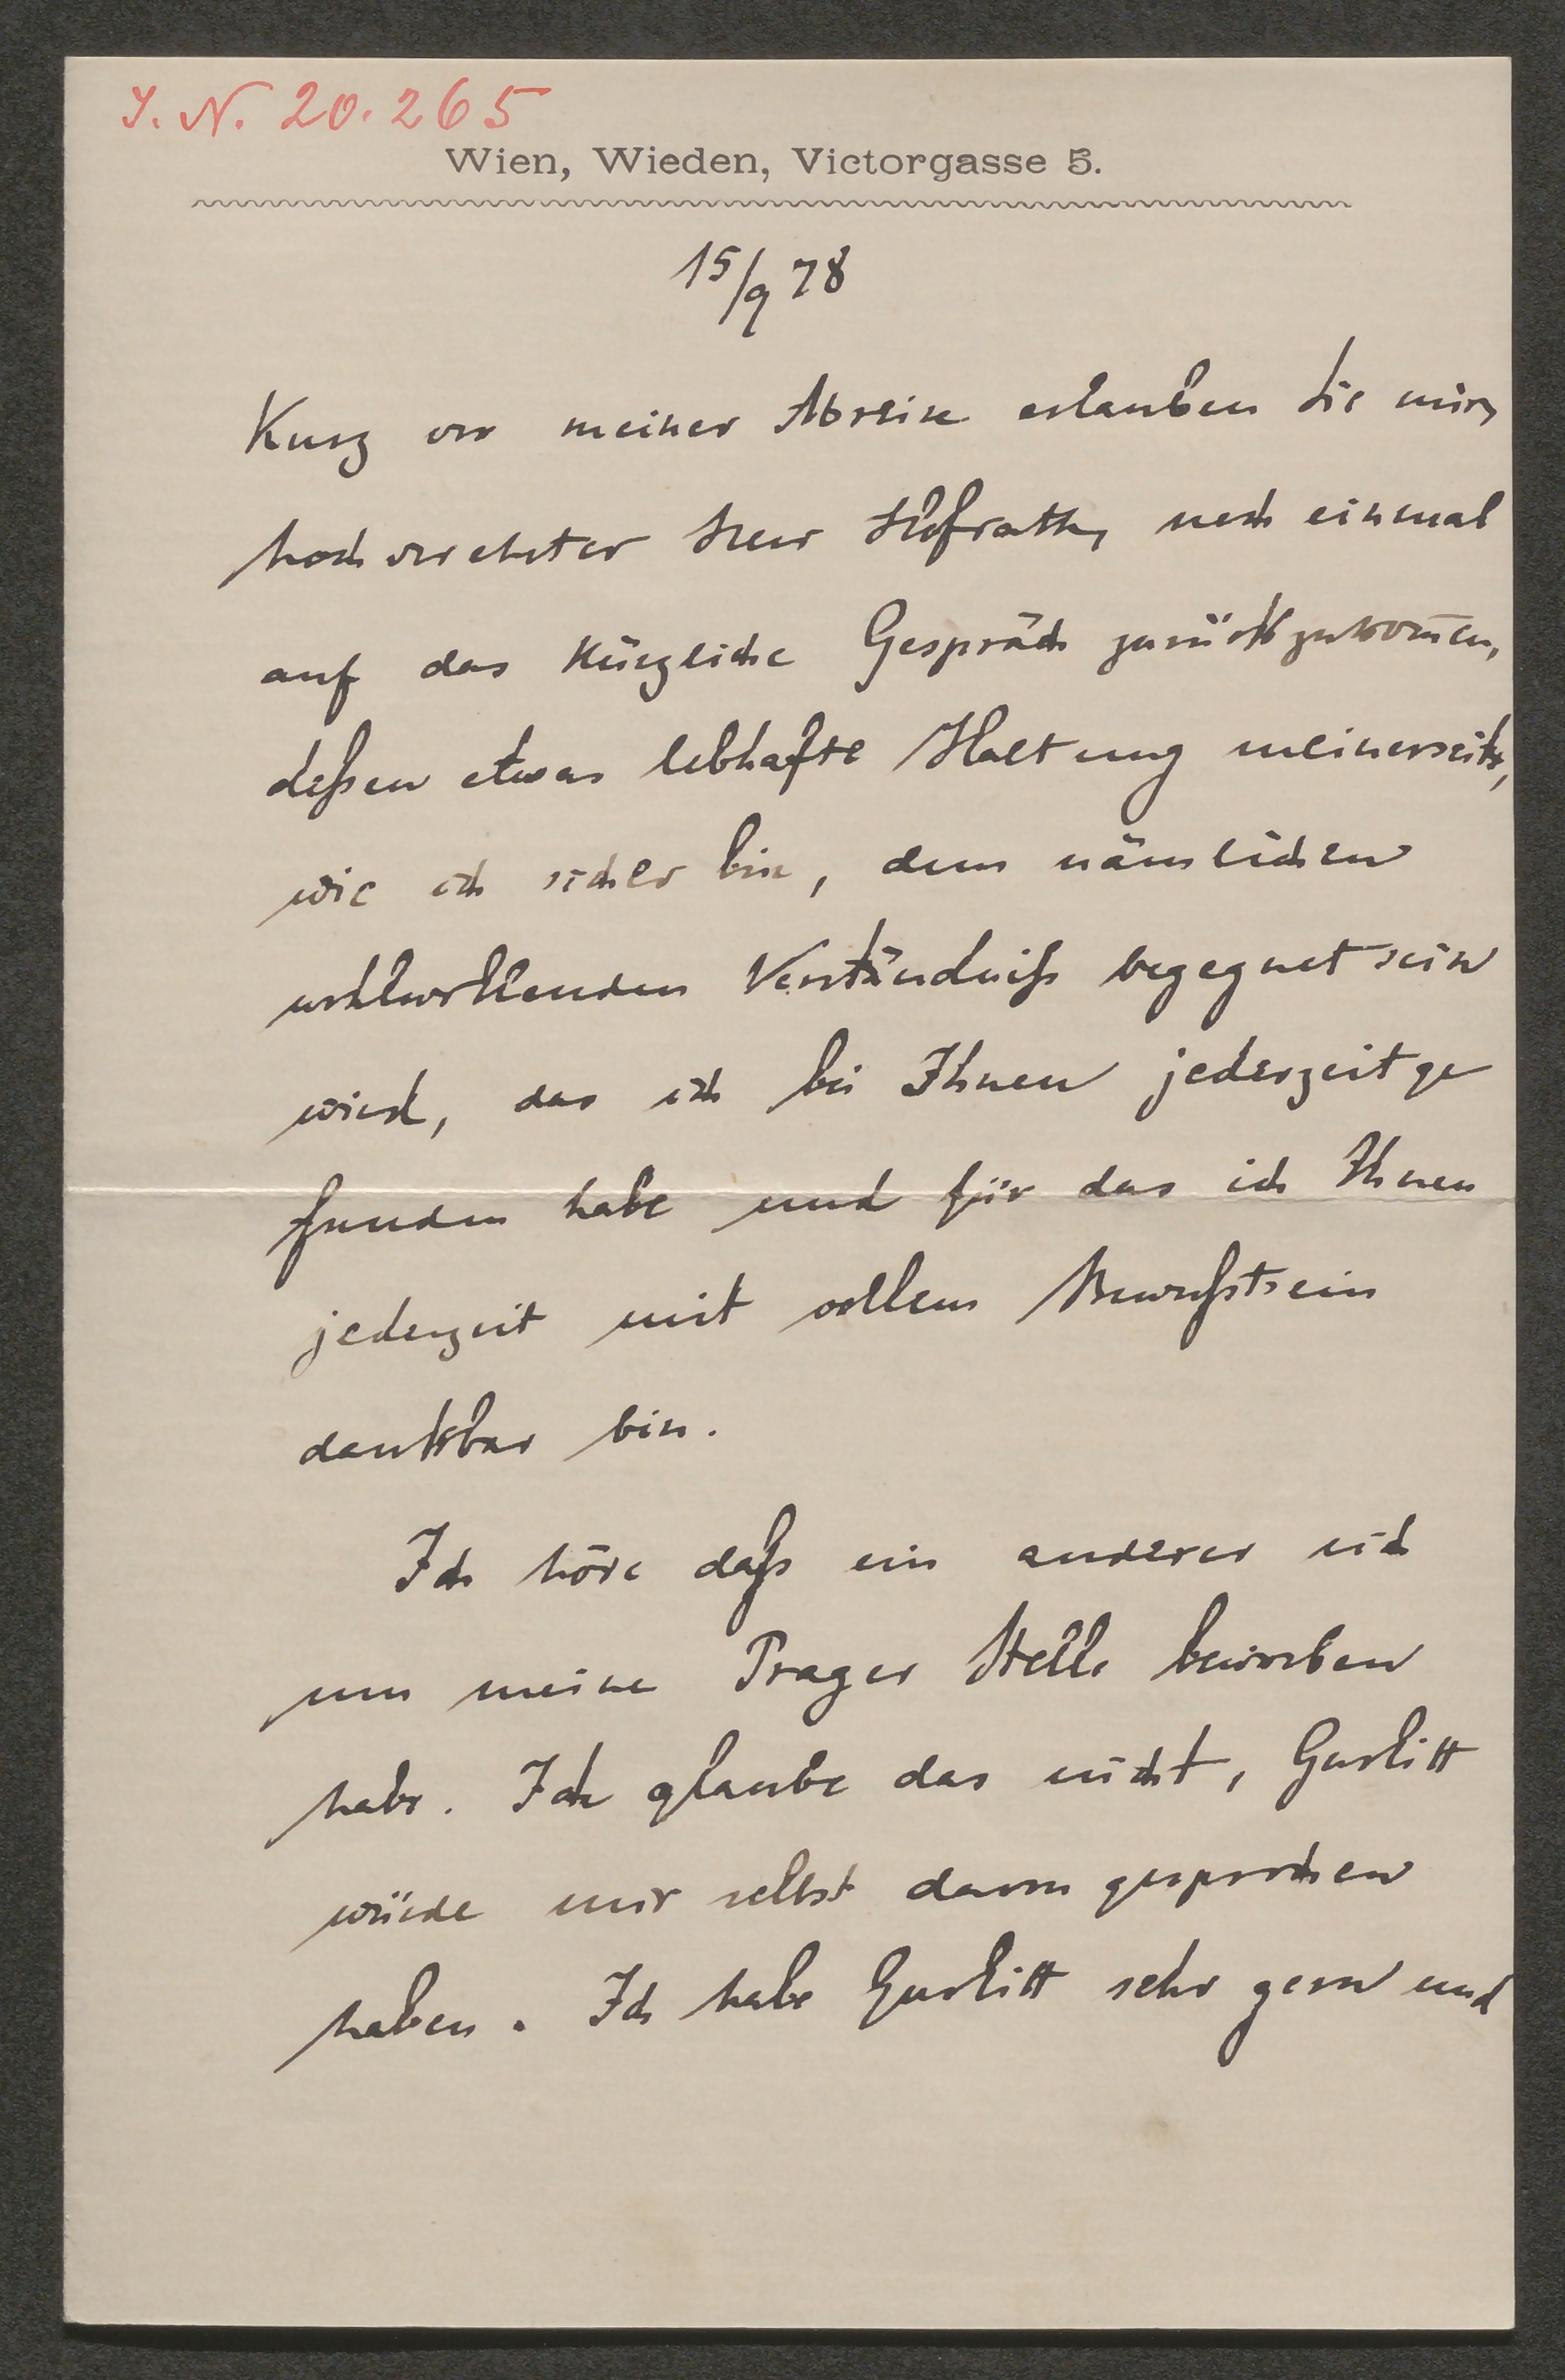 I. N. 20.265
Wien, Wieden, Victorgasse 5.
15/9 78
Kurz vor meiner Abreise erlauben Sie mir,
hochverehrter Herr Hofrath, noch einmal
auf das kürzliche Gespräch zurückzukom̅en,
deßen etwas lebhafte Haltung meinerseits,
wie ich sicher bin, dem nämlichen
wohlwollenden Verständniß begegnet sein
wird, das ich bei Ihnen jederzeit ge
funden habe und für das ich Ihnen
jederzeit mit vollem Bewußtsein
dankbar bin.
Ich höre daß ein anderer sich
um meine Prager Stelle beworben
habe. Ich glaube das nicht, Gurlitt
würde mir selbst davon gesprochen
haben. Ich habe Gurlitt sehr gern und